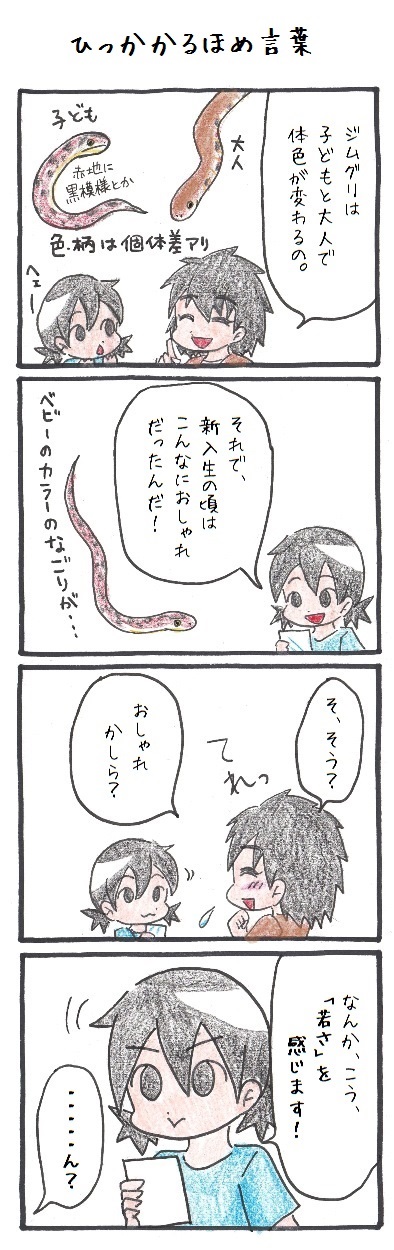 ひっかかるほめ言葉
ジムグリは
子どもと大人で
体色が変わるの。
大人
子ども
赤地に
黒模様とか
色・柄は個体差アリ
ヘェー
それで、
新入生の頃は
こんなにおしゃれ
だったんだ!
ベビーのカラーのなごりが・・・
そ、そう?
てれっ
おしゃれ
かしら?
なんか、こう、
「若さ」を
感じます!
・・・・・・ん?